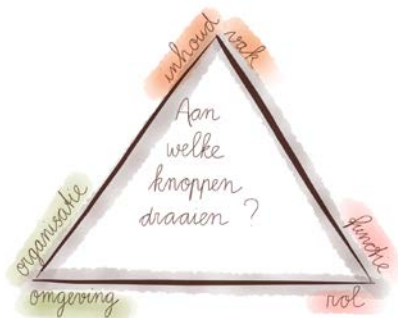 inhoud
vak
Aan
welke
knoppen
draaien ?
organisatie
omgeving
functie
rol